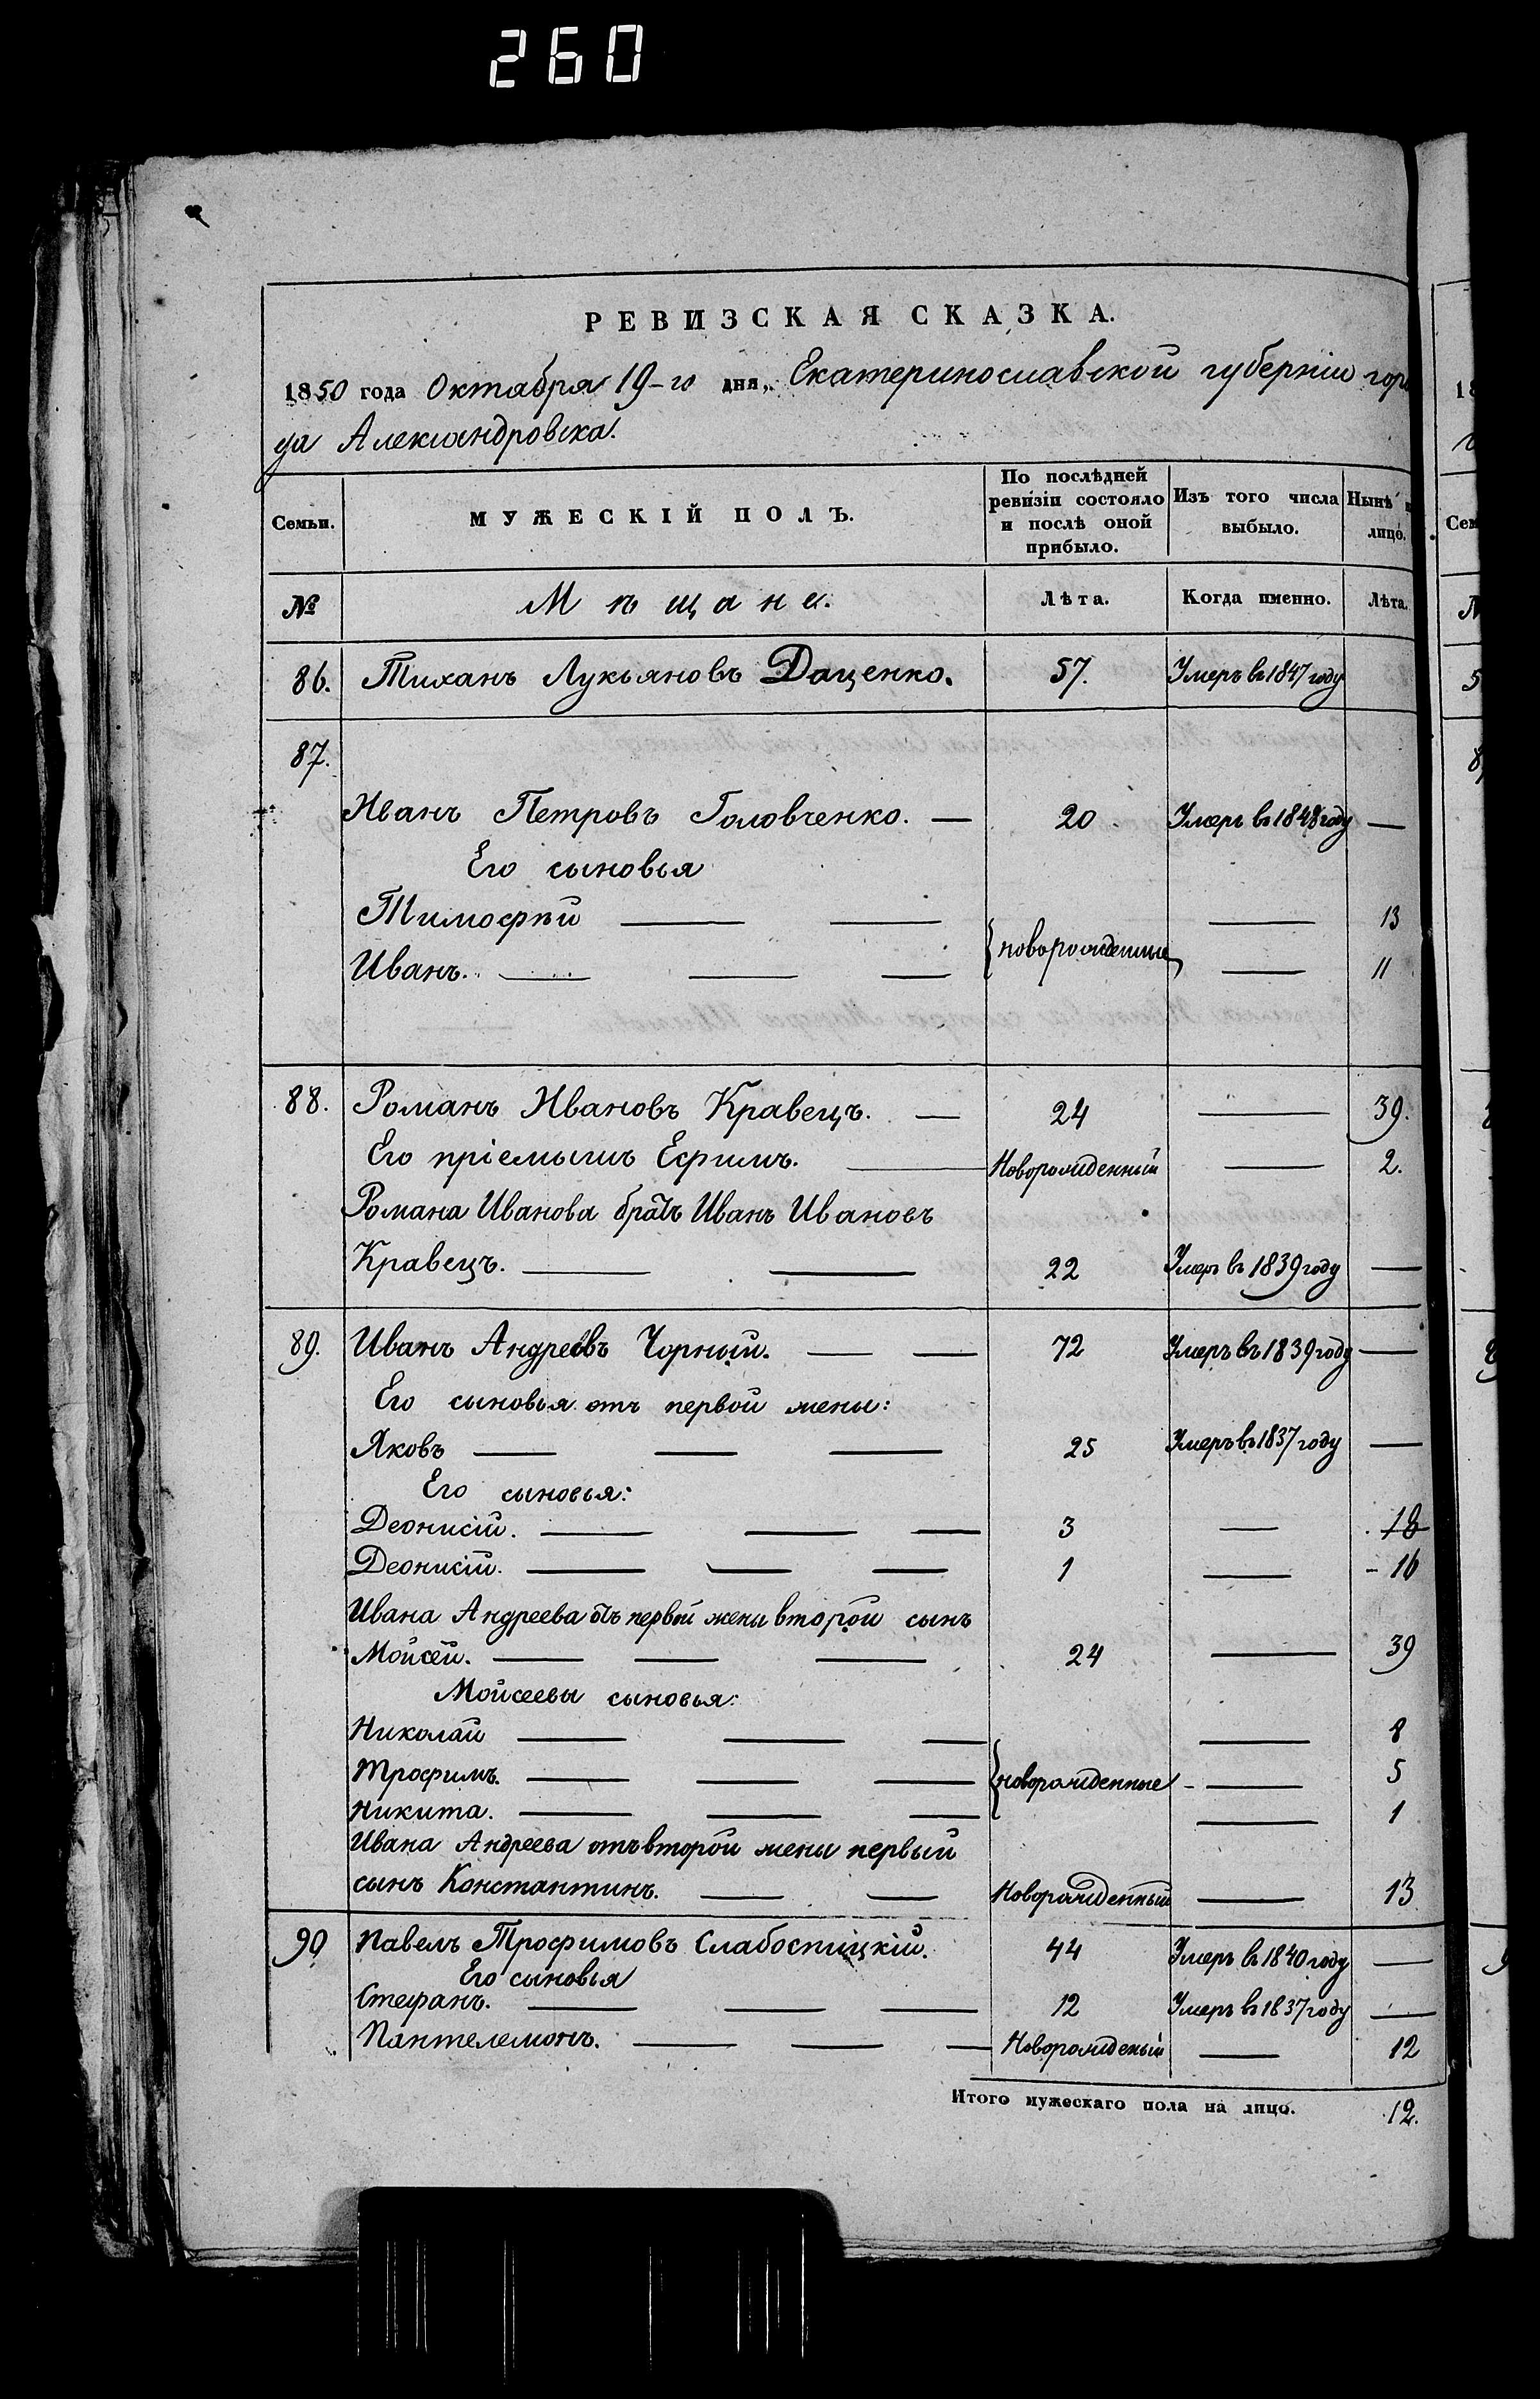 260
РЕВИЗСКАЯ СКАЗКА.
1850 года Октября 19-го дня, Екатеринославской губерніи горо
да Александровска.
Семьи. МУЖЕСКІЙ ПОЛЪ. По послѣдней ревизіи состояло и послѣ оной прибыло. Изъ того числа выбыло. Нынѣ на лицо.
№ Мѣщане. Лѣта. Когда именно. Лѣта.
86. Тиханъ Лукьяновъ Даценко. 57. Умеръ въ 1847 году
87.
Иванъ Петровъ Головченко. — 20 Умеръ въ 1848 году —
Его сыновья
Тимофѣй — — { новорожденные — 13
Иванъ. — — — — 11
88. Романъ Ивановъ Кравецъ. — 24 — 39.
Его пріемышъ Ефимъ. — Новорожденный — 2.
Романа Иванова братъ Иванъ Ивановъ
Кравецъ. — — 22 Умеръ въ 1839 году —
89. Иванъ Андреевъ Чорный. — — 72 Умеръ въ 1839 году —
Его сыновья отъ первой жены:
Яковъ — — — 25 Умеръ въ 1837 году —
Его сыновья:
Деонисій. — — — 3 — 18
Деонисій. — — — 1 — - 16
Ивана Андреева отъ первой жены второй сынъ
Мойсей. — — — 24 — 39
Мойсеевы сыновья:
Николай — — — — 8
Трофимъ. — — — { новорожденные - — 5
Никита. — — — — 1
Ивана Андреева отъ второй жены первый
сынъ Константинъ. — — Новорожденный — 13
90 Павелъ Трофимовъ Слабоспицкій. 44 Умеръ въ 1840 году —
Его сыновья
Стефанъ. — — — 12 Умеръ въ 1837 году —
Пантелемонъ. — — — Новорожденый — 12
Итого мужескаго пола на лицо. 12.